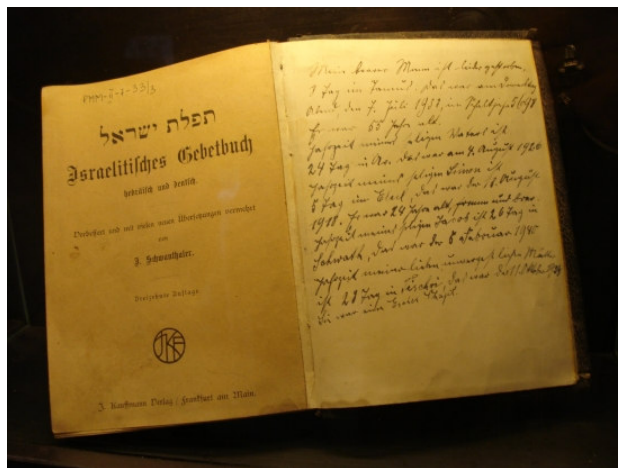 PMM-II-1-33/3
תפלת ישראל
Israelitisches Gebetbuch
hebräisch und deutsch.
Verbessert und mit vielen neuen Übersetzungen vermehrt
von
J. Schwanthaler.
Dreizehnte Auflage.
JKF
J. Kauffmann Verlag / Frankfurt am Main.
Mein braver Mann ist leider gestorben,
Tag im Tamus. Das war am
Abend den 7. Juli 1938, im
Er war 65 Jahre alt.
Jahrzeit meines seligen Vaters ist
24 Tag in Av. Das war am 4. August 1926
Jahrzeit meines seligen ist
5 Tag im Elul, das war der 11. August
1918. Er war 24 Jahre alt, fromm und brav.
Jahrzeit meines seligen Jacob ist 26 Tag in
das war der 5 Februar 1940
Jahrzeit meiner lieben Mutter
ist 28 Tag in Tischri, das war der 11 Oktober
Sie war eine